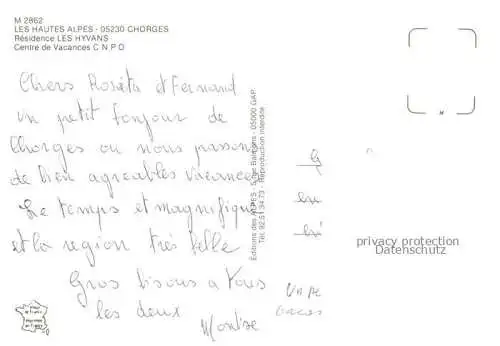 M 2862
LES HAUTES ALPES - 05230 CHORGES
Résidence LES HYVANS
Centre de Vacances C N P O
Chers Roséta et Fernand
un petit bonjour de
Chorges ou nous passons
de bien agreables vacances
Le temps et magnifique
et la region très belle
Gros bisous a Vous
les deux
Montse
Editions des ALPES - 05000 GAP
Tél. 92.51.34.73 - Reproduction interdite
privacy protection
Datenschutz